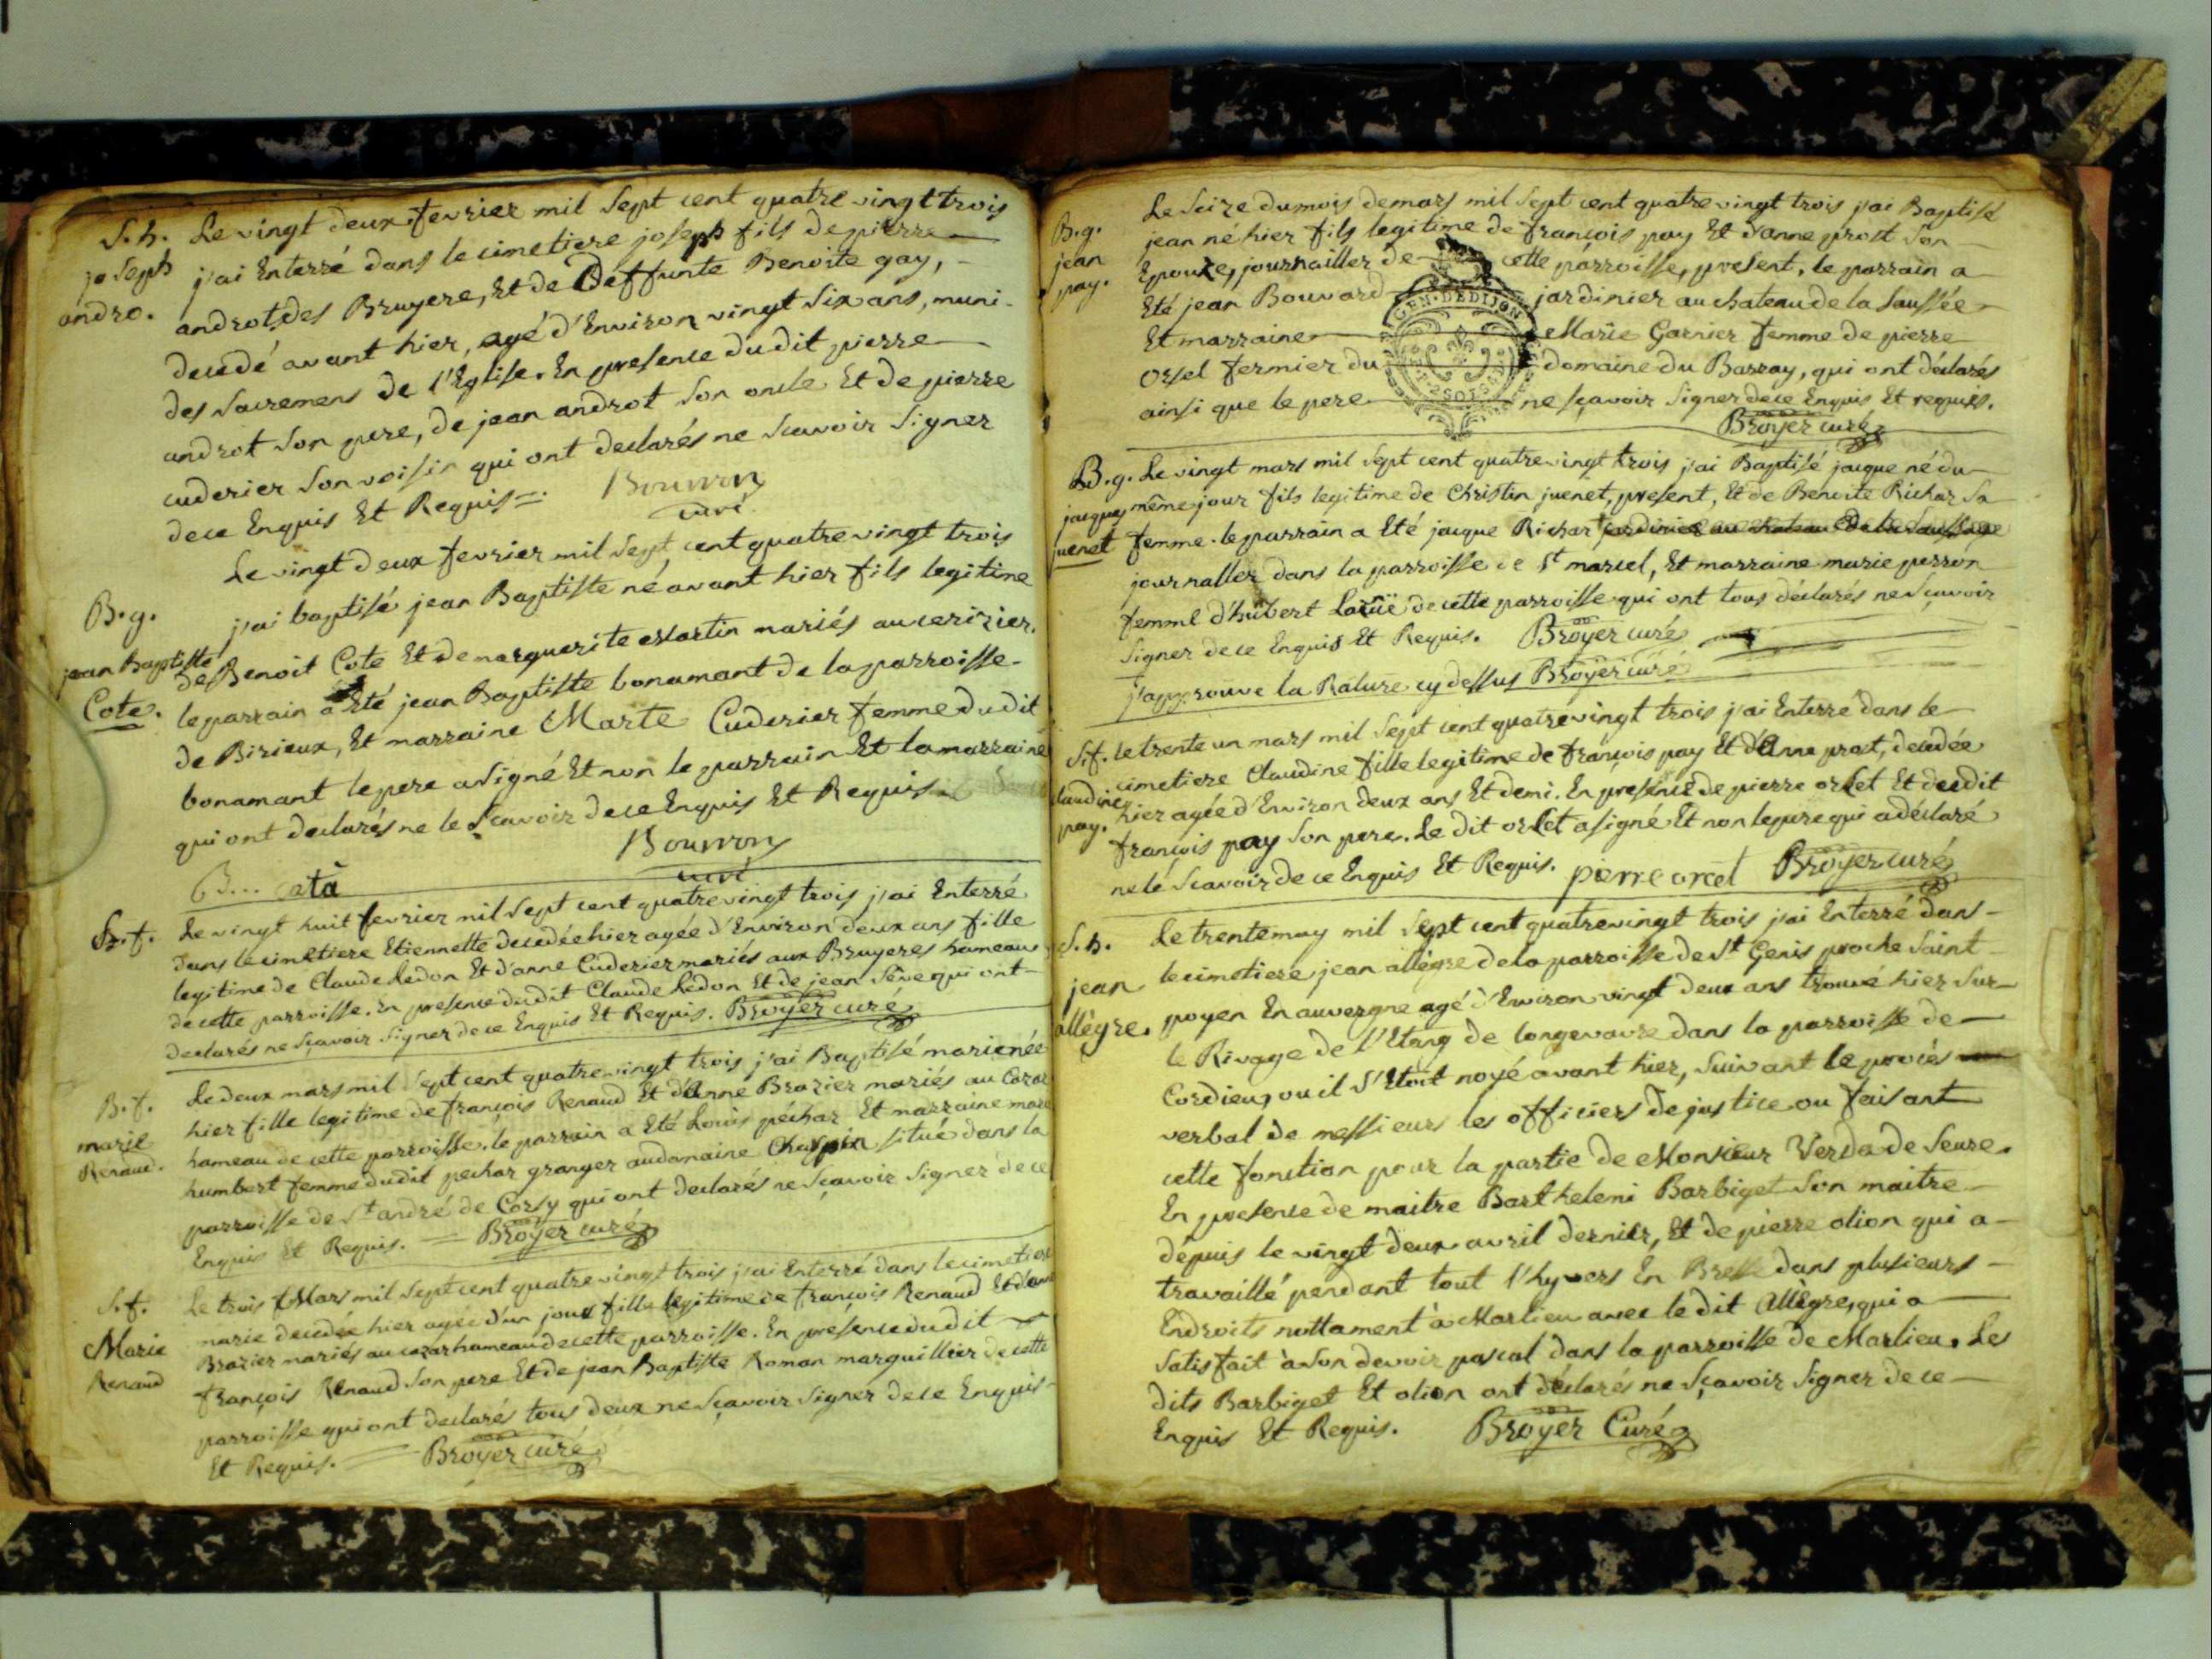 S. h. Le vingt deux fevrier mil sept cent quatre vingt trois
joseph j'ai Enterré dans le cimetiere joseph fils de pierre
andro. androt des Bruyere, Et de Deffunte Benoite gay,
decedé avant hier, agé d'Environ vingt six ans, muni
des sacremens de l'Eglise. En presence du dit pierre
androt son pere, de jean androt son oncle Et de pierre
cuderier son voisin qui ont declarés ne scavoir signer
de ce Enquis Et Requis. Bouvron
curé
Le vingt deux fevrier mil sept cent quatre vingt trois
B. g. j'ai baptisé jean Baptiste né avant hier fils legitime
jean Baptiste de Benoit Cote Et de marguerite martin mariés au cerizier.
Cote. le parrain a Eté jean Baptiste bonamant de la parroisse
de Birieux, Et marraine Marte Cuderier femme du dit
bonamant le pere a signé Et non le parrain Et la marraine
qui ont declarés ne le scavoir de ce Enquis Et Requis
Bouvron
B... cata
curé
S. f. Le vingt huit fevrier mil sept cent quatre vingt trois j'ai Enterré
dans le cimetiere Etiennette decedée hier agée d'Environ deux ans fille
legitime de Claude Ledon Et d'anne Cuderier mariés aux Bruyeres hameau
de cette parroisse. En presence du dit Claude Ledon Et de jean Séve qui ont
declarés ne sçavoir signer de ce Enquis Et Requis. Broyer curé
B. f. Le deux mars mil sept cent quatre vingt trois j'ai Baptisé marie née
marie hier fille legitime de françois Renaud Et d'Anne Brazier mariés au Cozar
Renaud. hameau de cette parroisse. le parrain a Eté Louis péchar Et marraine marie
humbert femme du dit pechar granger au domaine Chappin situé dans la
parroisse de St andré de Corsy qui ont declarés ne sçavoir signer de ce
Enquis Et Requis. Broyer curé
S. f. Le trois Mars mil sept cent quatre vingt trois j'ai Enterré dans le cimetiere
Marie marie decedée hier agée d'un jour fille legitime de françois Renaud Et d'anne
Renaud Brazier mariés au cozar hameau de cette parroisse. En presence du dit
françois Renaud son pere Et de jean Baptiste Roman marguillier de cette
parroisse qui ont declarés tous deux ne sçavoir signer de ce Enquis
Et Requis. Broyer curé
Le seize du mois de mars mil sept cent quatre vingt trois j'ai Baptisé
B. g. jean né hier fils legitime de françois pay Et d'anne prost son
jean Epouze, journallier de cette parroisse, present, le parrain a
pay. Eté jean Bouvard jardinier au chateau de la saussée
Et marraine Marie Garnier femme de pierre
Orsel fermier du domaine du Barray, qui ont déclarés
ainsi que le pere ne sçavoir signer de ce Enquis Et requis.
GEN. DE DIJON
Broyer curé
B. g. Le vingt mars mil sept cent quatre vingt trois j'ai Baptisé jacque né du
jacque même jour fils legitime de Christin juenet, present, Et de Benoite Richar sa
juenet femme. le parrain a Eté jacque Richar jardinier au chateau de la saussaye
journallier dans la parroisse de St marcel, Et marraine marie perron
femme d'hubert de cette parroisse qui ont tous déclarés ne sçavoir
signer de ce Enquis Et Requis. Broyer curé
j'approuve la Rature cy dessus Broyer curé
S. f. Le trente un mars mil sept cent quatre vingt trois j'ai Enterré dans le
claudine cimetiere Claudine fille legitime de françois pay Et d'Anne prost, decedée
pay. hier agée d'Environ deux ans Et demi. En presence de pierre orset Et du dit
françois pay son pere. Le dit orset a signé Et non le pere qui a déclaré
ne le scavoir de ce Enquis Et Requis. pierre orcel Broyer curé
S. h. Le trente may mil sept cent quatre vingt trois j'ai Enterré dans
jean le cimetiere jean allègre de la parroisse de St Genis proche saint
allègre. poyen En auvergne agé d'Environ vingt deux ans trouvé hier sur
le Rivage de l'Etang de longevavre dans la parroisse de
Cordieu, ou il s'Etoit noyé avant hier, suivant le procès
verbal de messieurs les officiers de justice ou faisant
cette fonction pour la partie de Monsieur Verda de Seure.
En presence de maitre Barthelemi Barbiget son maitre
depuis le vingt deux avril dernier, Et de pierre olion qui a
travaillé pendant tout l'hyvers En Bresse dans plusieurs
Endroits nottament à Marlieu avec le dit Allègre, qui a
satisfait à son devoir pascal dans la parroisse de Marlieu. Les
dits Barbiget Et olion ont déclarés ne sçavoir signer de ce
Enquis Et Requis. Broyer Curé